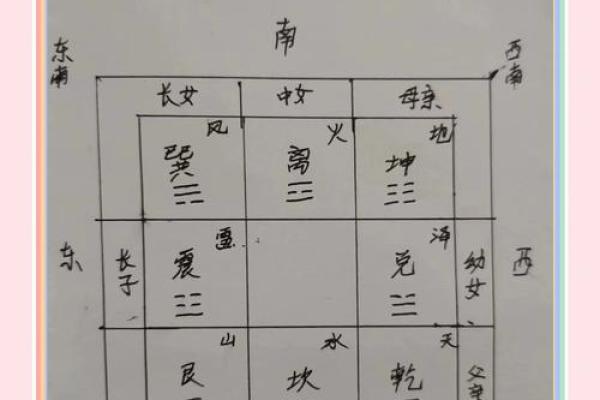 南
东南
西南
长女 中女 母亲
风 火 地
巽 离 坤
☴ ☲ ☷
东 长子 震 雷 兑 泽 幼女 西
☳ ☱
山 水 天
艮 坎 乾 父亲